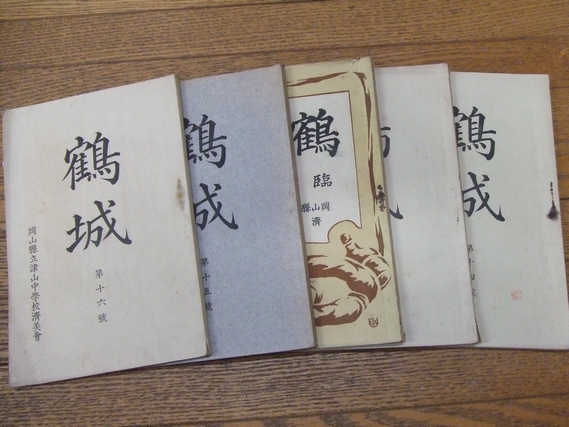 鶴城
第十六號
岡山縣立津山中學校濟美會
鶴
城
第十五號
鶴
臨
岡山縣
濟
鶴
城
第十四號